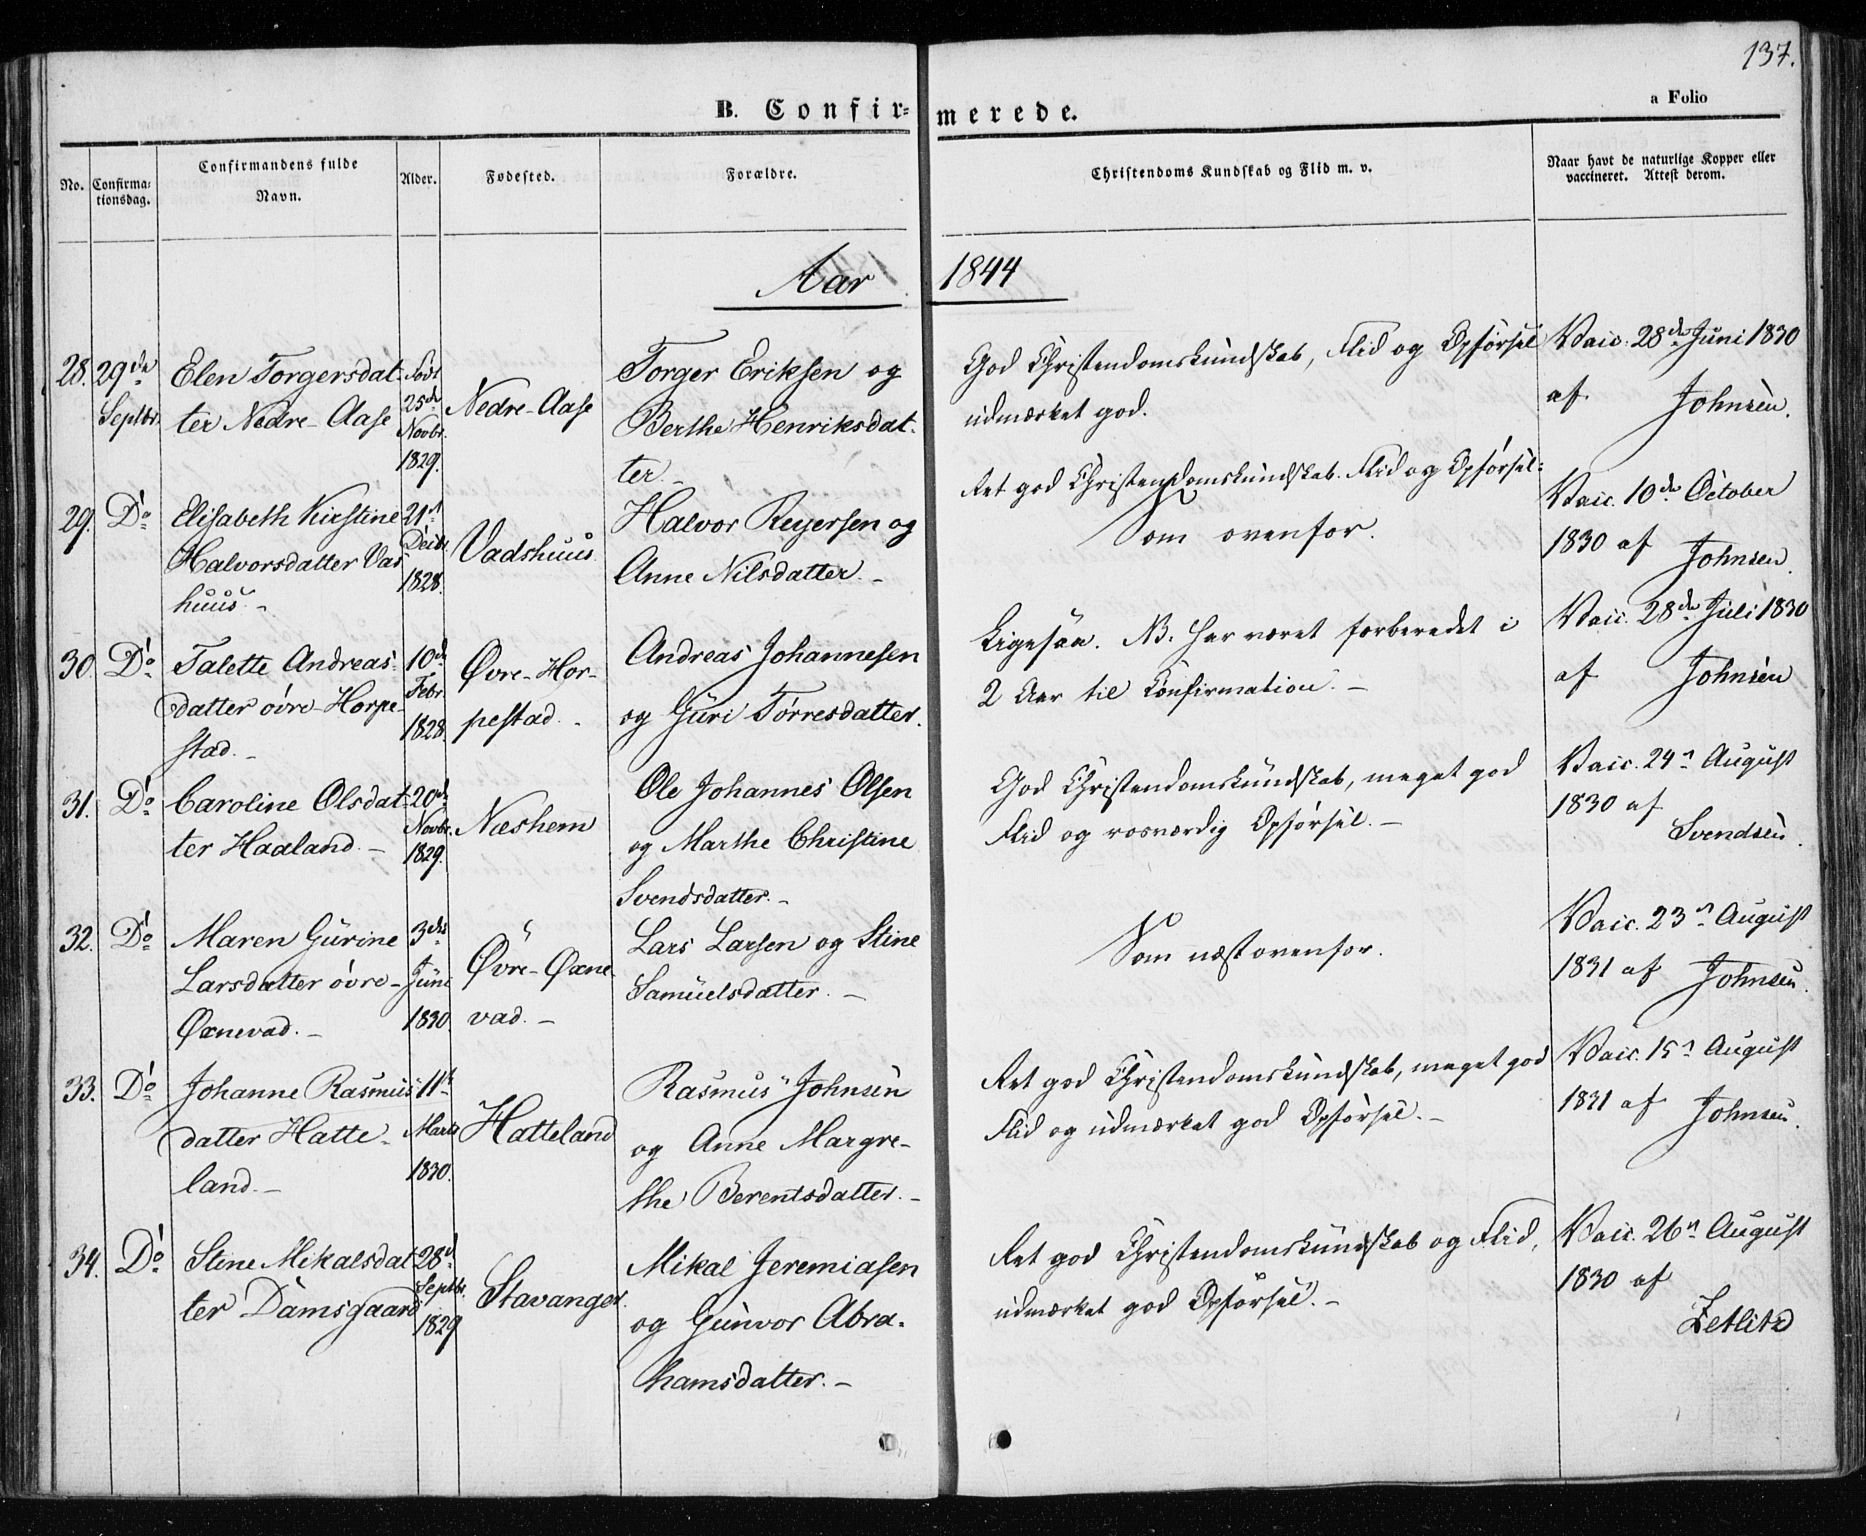 137.
B. Confir-
merede.
a Folio
No.
Confirma-
tionsdag.
Confirmandens fulde
Navn.
Alder.
Fødested.
Forældre.
Christendoms Kundskab og Flid m. v.
Naar havt de naturlige Kopper eller
vaccineret. Attest derom.
Aar
1844
28.
29de
Septbr.
Elen Torgersdat-
ter Nedre-Aase
Født
25de
Novbr.
1829.
Nedre-Aase
Torger Eriksen og
Berthe Henriksdat-
ter.-
God Christendomskundskab, Flid og Opførsel
udmærket god.
Vacc. 28de Juni 1830
af Johnsen.
29.
Do
Elisabeth Kirstine
Halvorsdatter Vas
huus.-
21de
Decbr.
1828.
Vadshuus
Halvor Reyersen og
Anne Nilsdatter.-
Ret god Christendomskundskab. Flid og Opførsel-
Som ovenfor.
Vacc. 10de October
1830 af Johnsen.
30.
Do
Talette Andreas-
datter øvre-Horpe-
stad.-
10de
Febr.
1828.
Øvre-Hor-
pestad.-
Andreas Johannesen
og Guri Tørresdatter.
Ligesaa. NB. Har været forberedet i
2 Aar til Confirmation.-
Vacc. 28de Juli 1830
af Johnsen
31.
Do
Caroline Olsdat-
ter Haaland.-
20de
Novbr.
1829.
Næshem
Ole Johannes Olsen
og Marthe Christine
Svendsdatter.-
God Christendomskundskab, meget god
Flid og rosværdig Opførsel.-
Vacc. 24de August
1830 af
Svendsen.
32.
Do
Maren Gurine
Larsdatter øvre-
Øxnevad.-
3die
Juni
1830.
Øvre-Øxne
vad.-
Lars Larsen og Stine
Samuelsdatter.-
Som næst ovenfor.
Vacc. 23de August
1831 af Johnsen.
33.
Do
Johanne Rasmus-
datter Hatte-
land.-
11te
Marts
1830.
Hatteland
Rasmus Johnsen
og Anne Margre-
the Berentsdatter.-
Ret god Christendomskundskab, meget god
Flid og udmærket god Opførsel.-
Vacc. 15de August
1831 af Johnsen.
34.
Do
Stine Mikalsdat-
ter Damsgaard
28de
Septbr.
1829
Stavanger.
Mikal Jeremiasen
og Gunvor Abra-
hamsdatter.-
Ret god Christendomskundskab og Flid,
udmærket god Opførsel.-
Vacc. 26de August
1830 af
Zetlitz